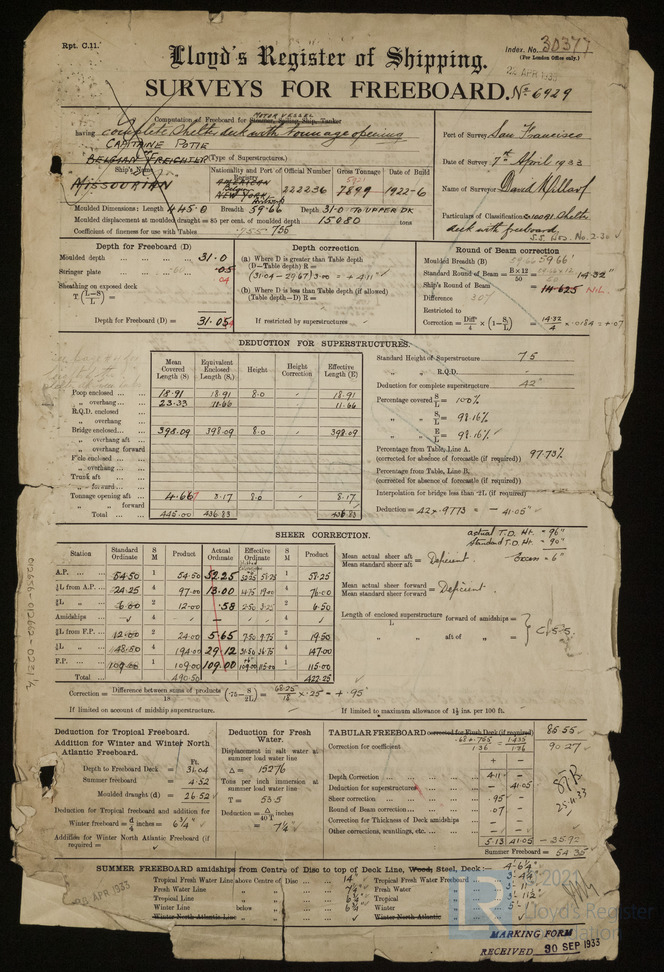 Rpt. C.11.
Index. No. 30377
(For London Office only.)
Lloyd's Register of Shipping.
22 APR 1933
SURVEYS FOR FREEBOARD. No 6929
MOTOR VESSEL
Computation of Freeboard for Steamer, Sailing Ship, Tanker
having complete Shelter deck with tonnage opening
CAPITAINE POTIE
BELGIAN FREIGHTER (Type of Superstructures.)
Port of Survey San Francisco
Date of Survey 7th April 1933
Name of Surveyor David
Particulars of Classification +100A1 Shelter
deck with freeboard
S.S. No. 2-30
Ship's Name
MISSOURIAN
Nationality and Port of Registry
AMERICAN
NEW YORK
Official Number
222236
Gross Tonnage
7899
Date of Build
1922-6
Moulded Dimensions: Length 445.0 Breadth 59.66 Depth 31.0 TO UPPER DK
Moulded displacement at moulded draught = 85 per cent. of moulded depth 15080 tons
Coefficient of fineness for use with Tables .755 .735
Depth for Freeboard (D)
Moulded depth 31.0
Stringer plate .05
04
Sheathing on exposed deck
T (L-S / L) =
Depth for Freeboard (D) = 31.05
Depth correction
(a) Where D is greater than Table depth
(D-Table depth) R =
(31.04 - 29.67) 3.00 = + 4.11"
(b) Where D is less than Table depth (if allowed)
(Table depth-D) R =
If restricted by superstructures
Round of Beam correction
Moulded Breadth (B) 59.66'
Standard Round of Beam = B x 12 / 50 = 14.32"
Ship's Round of Beam = 14.625 NIL
Difference .307
Restricted to
Correction = Diff / 4 x (1 - S₁/L) = 14.32 / 4 x .0184 = +.07
DEDUCTION FOR SUPERSTRUCTURES.
Mean Covered Length (S)
Equivalent Enclosed Length (S₁)
Height
Height Correction
Effective Length (E)
Poop enclosed 18.91 18.91 8.0 18.91
„ overhang 23.33 11.66 11.66
R.Q.D. enclosed
„ overhang
Bridge enclosed 398.09 398.09 8.0 398.09
„ overhang aft
„ overhang forward
F'cle enclosed
„ overhang
Trunk aft
„ forward
Tonnage opening aft 4.667 8.17 8.0 8.17
„ „ forward
Total 445.00 436.83 436.83
Standard Height of Superstructure 7.5
„ „ R.Q.D.
Deduction for complete superstructure 42"
Percentage covered S/L = 100%
„ „ S₁/L = 98.16%
„ „ E/L = 98.16%
Percentage from Table, Line A.
(corrected for absence of forecastle (if required)) 97.73%
Percentage from Table, Line B.
(corrected for absence of forecastle (if required))
Interpolation for bridge less than .2L (if required)
Deduction = 42 x .9773 = - 41.05"
SHEER CORRECTION.
actual T.D. Ht. = 96"
Standard T.D. Ht. = 90"
Excess = 6"
Station
Standard Ordinate
S M
Product
Actual Ordinate
Effective Ordinate
S M
Product
A.P. 54.50 1 54.50 52.25 52.25 57.25 1 57.25
⅙L from A.P. 24.25 4 97.00 13.00 14.75 19.00 4 76.00
⅓L „ 6.00 2 12.00 .58 2.50 3.25 2 6.50
Amidships 4 4
⅓L from F.P. 12.00 2 24.00 5.65 7.50 9.75 2 19.50
⅙L „ 48.50 4 194.00 29.12 31.50 36.75 4 147.00
F.P. 109.00 1 109.00 109.00 109.00 115.00 1 115.00
Total 490.50 422.25
Mean actual sheer aft / Mean standard sheer aft = Deficient.
Mean actual sheer forward / Mean standard sheer forward = Deficient.
Length of enclosed superstructure / L forward of amidships =
„ „ aft of „ =
C.S.S.
Correction = Difference between sums of products / 18 (.75 - S/2L) = 68.25 / 18 x .25 = + .95"
If limited on account of midship superstructure.
If limited to maximum allowance of 1½ ins. per 100 ft.
Deduction for Tropical Freeboard.
Addition for Winter and Winter North
Atlantic Freeboard.
Ft.
Depth to Freeboard Deck = 31.04
Summer freeboard = 4.52
Moulded draught (d) = 26.52
Deduction for Tropical freeboard and addition for
Winter freeboard = d/4 inches = 6¾"
Addition for Winter North Atlantic Freeboard (if
required) =
Deduction for Fresh
Water.
Displacement in salt water at
summer load water line
Δ = 15276
Tons per inch immersion at
summer load water line
T = 53.5
Deduction = Δ / 40T inches
= 7¼"
TABULAR FREEBOARD corrected for Flush Deck (if required) 85.55
Correction for coefficient .68 + .755 / 1.36 = 1.435 / 1.36 90.27
+ -
Depth Correction 4.11 -
Deduction for superstructures - 41.05
Sheer correction .95 -
Round of Beam correction .07 -
Correction for Thickness of Deck amidships - -
Other corrections, scantlings, etc. - -
5.13 41.05 - 35.92
Summer Freeboard = 54.35
25.4.33
SUMMER FREEBOARD amidships from Centre of Disc to top of Deck Line, Wood, Steel, Deck :— 4-6¼"
Tropical Fresh Water Line above Centre of Disc 14"
Fresh Water Line „ „ 7¼"
Tropical Line „ „ 6¾"
Winter Line below „ „ 6¾"
Winter North Atlantic Line „ „
Tropical Fresh Water Freeboard 3-4¼"
Fresh Water „ 3-11"
Tropical „ 3-11½"
Winter „ 5-1"
Winter North Atlantic „
22 APR 1933
MARKING FORM
RECEIVED 30 SEP 1933
012656-012662-0231 1/2
LR
© 2021
Lloyd's Register
Foundation